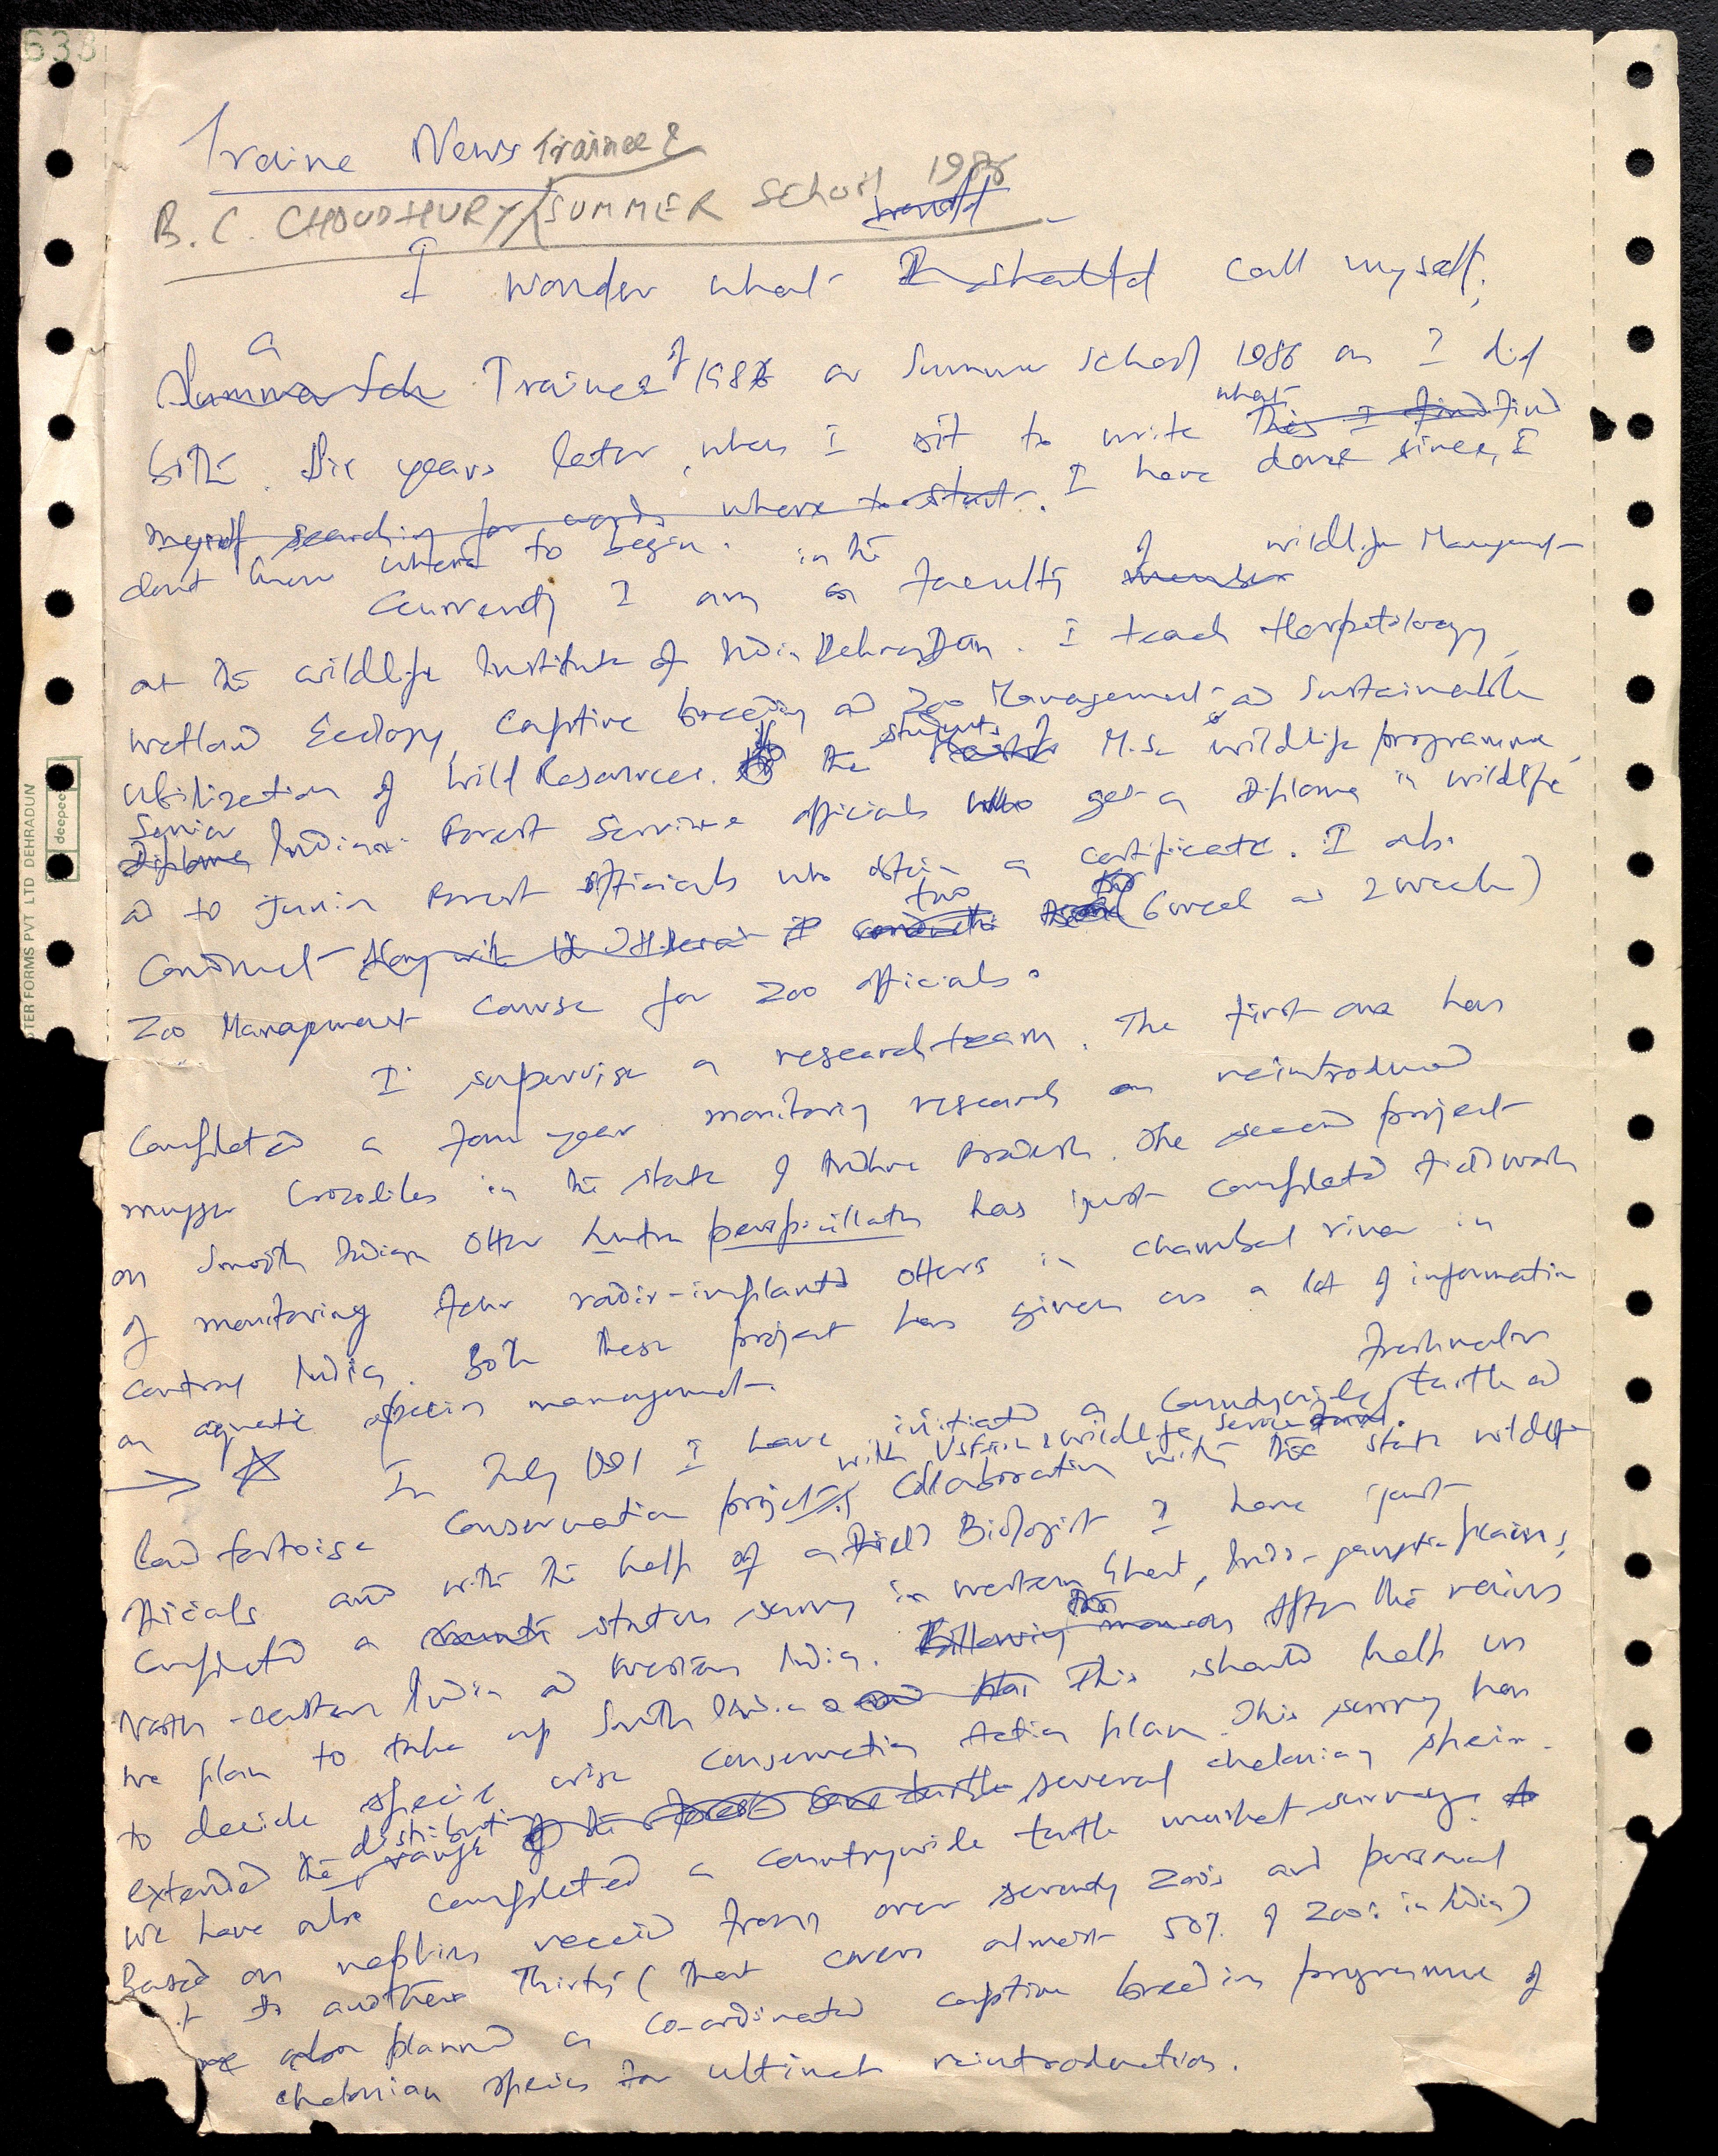 638
Traine News Trainee &
B. C. CHOUDHURY/SUMMER School 1986
I wonder what I should call myself;
a
Summer Sch Trainee of 1986 or Summer School 1986 as I did
what
both. Six years later, when I sit to write this I find find
myself searching for words where to start. I have done since, I
dont know where to begin.
in the of wildlife Management
Currently I am as faculty member
at the wildlife Institute of India Dehra Dun. I teach Herpetology,
Wetland Ecology, Captive breeding and Zoo Management and Sustainable
students of
Utilization of Wild Resources. to the M.Sc wildlife programme,
Senior
Diploma Indian Forest Service officials who get a Diploma in wildlife
and to Junior Forest officials who obtain a certificate. I also
two
Conduct along with the (6 week and 2 week)
Zoo Management Course for Zoo officials.
I supervise a research team. The first one has
Completed a four year monitoring research on reintroduced
mugger Crocodiles in the state of Andhra Pradesh. The second project
on Smooth Indian Otter Lutra perspicillata has just completed fieldwork
of monitoring four radio-implanted otters in Chambal river in
central India. Both these project has given us a lot of information
on aquatic species management.
freshwater
→ ☆ In July 1991 I have initiated a Countrywide turtle and
with US Fish & wildlife service
land tortoise Conservation project, Collaboration with the state wildlife
ficials and with the help of a Field Biologist I have just
Completed a status survey in western Ghat, Indo-gangetic plains,
North-eastern India and western India. Following monsoon After the rains
we plan to take up South India and This should help us
to decide specie wise Conservation Action plan. This survey has
distribution
extended the range of the several chelonian species.
We have also completed a Countrywide turtle market survey.
Based on replies receid from over seventy zoos and personal
to another Thirty (that covers almost 50% of zoos in India)
we also planned a co-ordinated captive breeding programme of
chelonian species for ultimate reintroduction.
TER FORMS PVT LTD DEHRADUN
deepee